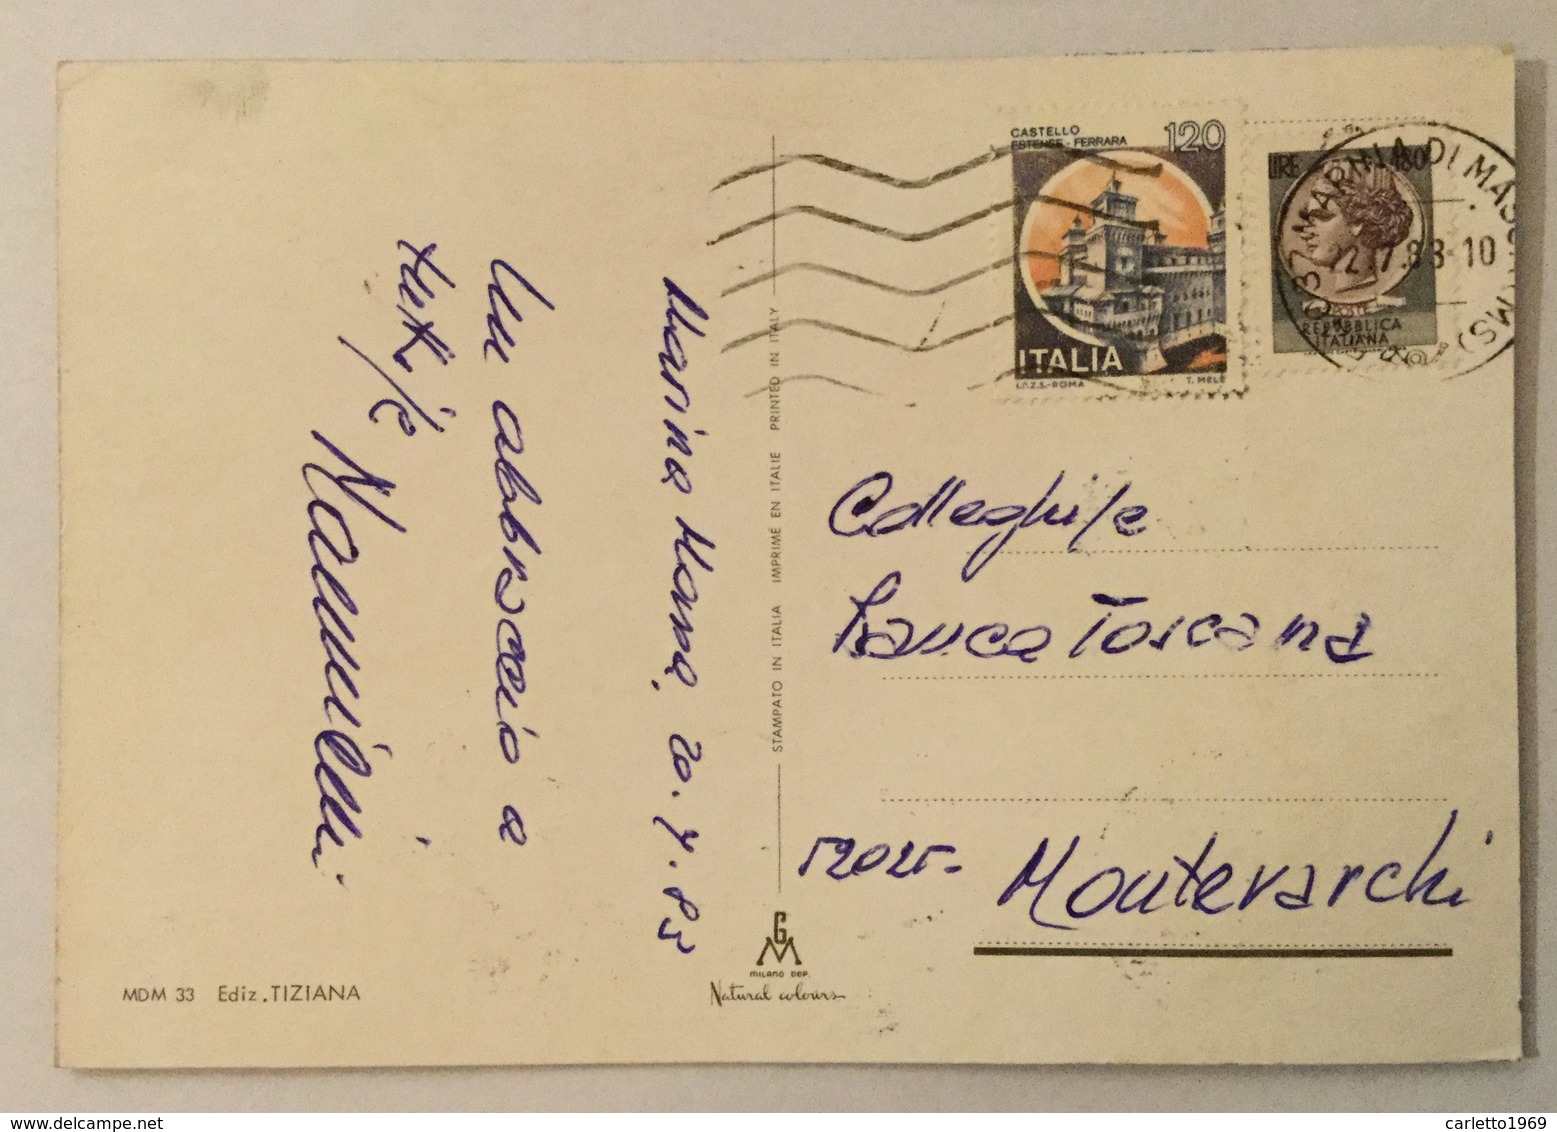 Marina Massa, 20.7.83
Un abbraccio a
tutti/e
Nannicini
STAMPATO IN ITALIA IMPRIMÉ EN ITALIE PRINTED IN ITALY
CASTELLO
ESTENSE - FERRARA
120
ITALIA
I.P.Z.S.-ROMA T. MELE
LIRE 180
POSTE
REPUBBLICA
ITALIANA
MARINA DI MASSA (MS)
22.7.83-10
Colleghi/e
Banca Toscana
52025-
Montevarchi
GM
MILANO DEP.
Natural colours
MDM 33 Ediz. TIZIANA
carletto1969